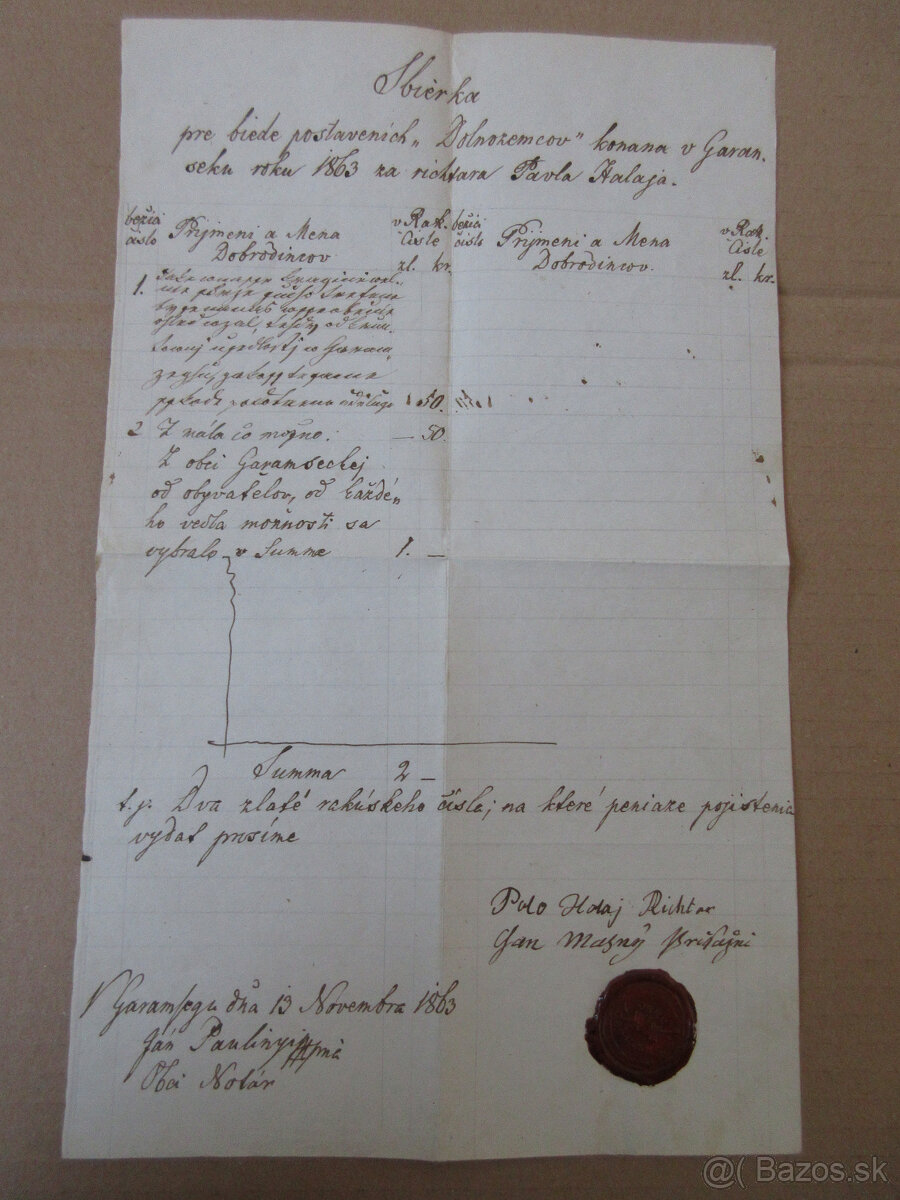 Sbierka
pre biede postavenich „Dolnozemcov" konana v Garan-
seku roku 1863 za richtara Pavla Halaja.
bežia
čislo
Prijmeni a Mena
Dobrodincov
v Rak.
Čisle
zl. kr.
bežia
čislo
Prijmeni a Mena
Dobrodincov.
v Rak.
Čisle
zl. kr.
1.
1 50.
2 Z mála čo možno. — 50.
Z obci Garamseckej
od obyvaťelov, od každé-
ho vedla možnosti sa
vybralo v Summe 1. —
Summa 2 —
t. j. Dva zlaté rakúskeho čísla; na které peniaze pojistenia
vydať prosíme
Palo Halaj Richtar
Jan Mazný Prisažni
V Garamsegu dňa 13 Novembra 1863
Ján Paulinyi
Obci Notár
@( Bazos.sk